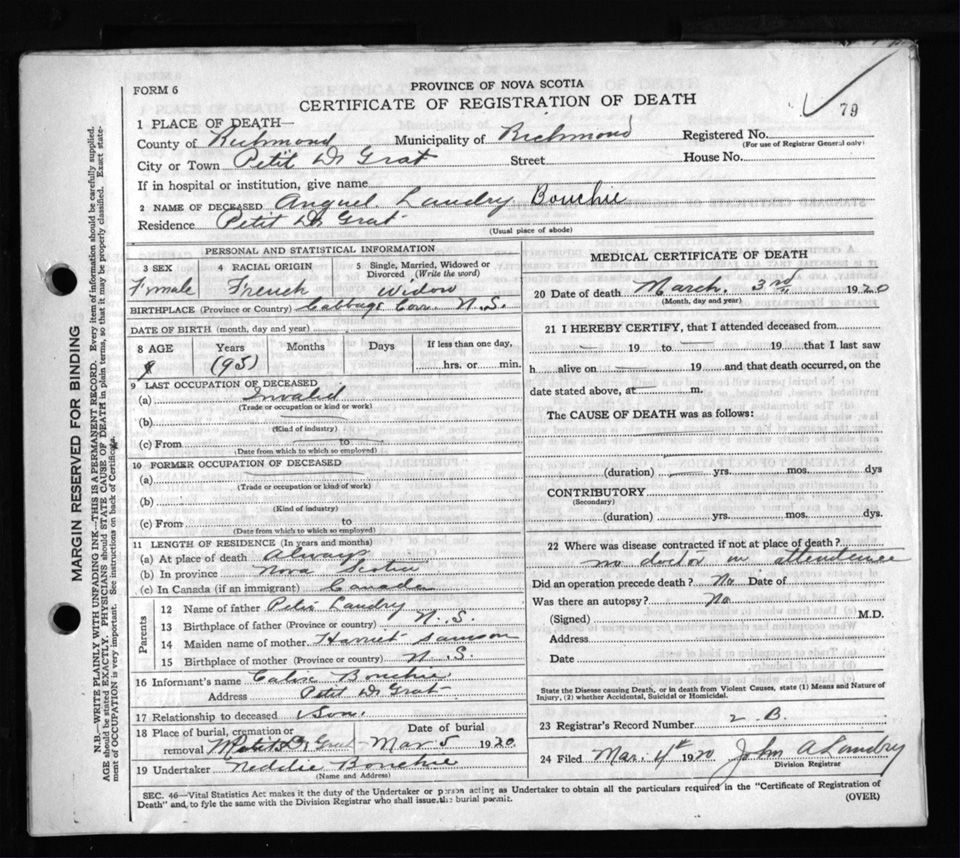 FORM 6
PROVINCE OF NOVA SCOTIA
CERTIFICATE OF REGISTRATION OF DEATH
79
1 PLACE OF DEATH—
County of Richmond Municipality of Richmond Registered No.
(For use of Registrar General only)
City or Town Petit De Grat Street House No.
If in hospital or institution, give name
2 NAME OF DECEASED Anquel Landry Bouchie
Residence Petit De Grat
(Usual place of abode)
PERSONAL AND STATISTICAL INFORMATION
3 SEX 4 RACIAL ORIGIN 5 Single, Married, Widowed or Divorced (Write the word)
Female French Widow
BIRTHPLACE (Province or Country) Cabbage Cove N.S.
DATE OF BIRTH (month, day and year)
8 AGE Years Months Days If less than one day,
(95) hrs. or min.
9 LAST OCCUPATION OF DECEASED
(a) Invalid
(Trade or occupation or kind or work)
(b)
(Kind of industry)
(c) From to
(Date from which to which so employed)
10 FORMER OCCUPATION OF DECEASED
(a)
(Trade or occupation or kind of work)
(b)
(Kind of industry)
(c) From to
(Date from which to which so employed)
11 LENGTH OF RESIDENCE (In years and months)
(a) At place of death Always
(b) In province Nova Scotia
(c) In Canada (if an immigrant) Canada
Parents
12 Name of father Landry
13 Birthplace of father (Province or country) N.S.
14 Maiden name of mother Harriet Samson
15 Birthplace of mother (Province or country) N.S.
16 Informant's name Calix Bouchie
Address Petit De Grat
17 Relationship to deceased Son
18 Place of burial, cremation or removal Petit De Grat Date of burial Mar 5 1920
19 Undertaker Neddie Bouchie
(Name and Address)
MEDICAL CERTIFICATE OF DEATH
20 Date of death March 3rd 1920
(Month, day and year)
21 I HEREBY CERTIFY, that I attended deceased from
19 to 19 that I last saw
h alive on 19 and that death occurred, on the
date stated above, at m.
The CAUSE OF DEATH was as follows:
(duration) yrs. mos. dys
CONTRIBUTORY
(Secondary)
(duration) yrs. mos. dys.
22 Where was disease contracted if not at place of death?
no doctor in attendence
Did an operation precede death? No Date of
Was there an autopsy? No
(Signed) M.D.
Address
Date
State the Disease causing Death, or in death from Violent Causes, state (1) Means and Nature of
Injury, (2) whether Accidental, Suicidal or Homicidal.
23 Registrar's Record Number 2 B.
24 Filed Mar. 4th 1920 John A Landry
Division Registrar
SEC. 46—Vital Statistics Act makes it the duty of the Undertaker or person acting as Undertaker to obtain all the particulars required in the "Certificate of Registration of
Death" and, to fyle the same with the Division Registrar who shall issue the burial permit.
(OVER)
MARGIN RESERVED FOR BINDING
N.B.—WRITE PLAINLY WITH UNFADING INK—THIS IS A PERMANENT RECORD. Every item of information should be carefully supplied.
AGE should be stated EXACTLY. PHYSICIANS should STATE CAUSE OF DEATH in plain terms, so that it may be properly classified. Exact state-
ment of OCCUPATION is very important. See instructions on back of Certificate.